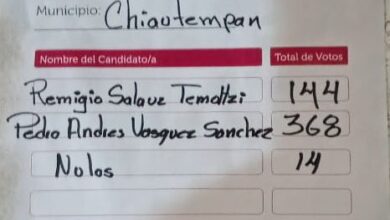 Municipio: Chiautempan
Nombre del Candidato/a Total de Votos
Remigio Salauz Temoltzi 144
Pedro Andres Vasquez Sanchez 368
Nulos 14